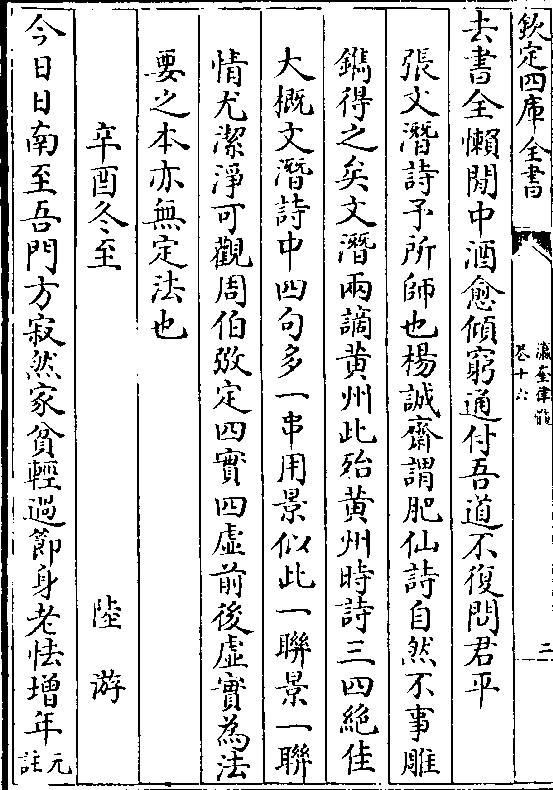 欽定四庫全書
瀛奎律髓
卷十六
三
去書全懶閒中酒愈傾窮通付吾道不復問君平
張文潛詩予所師也楊誠齋謂肥仙詩自然不事雕
鐫得之矣文潛兩謫黃州此殆黃州時詩三四絕佳
大概文潛詩中四句多一串用景似此一聯景一聯
情尤潔淨可觀周伯弜定四實四虛前後虛實為法
要之本亦無定法也
辛酉冬至
陸游
今日日南至吾門方寂然家貧輕過節身老怯增年
元
註